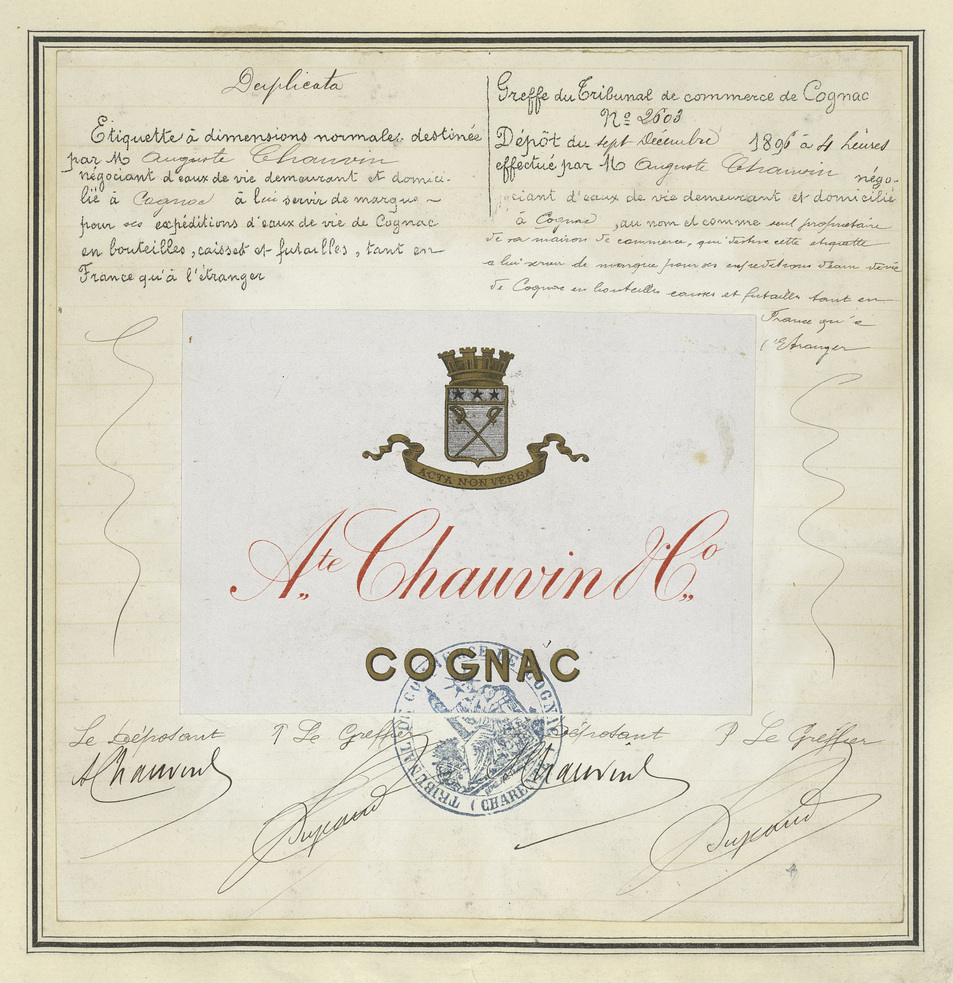 Duplicata
Etiquette à dimensions normales destinée
par M Auguste Chauvin
négociant d'eaux de vie demeurant et domici-
lié à Cognac à lui servir de marque
pour ses expéditions d'eaux de vie de Cognac
en bouteilles, caisses et futailles, tant en
France qu'à l'étranger
Greffe du Tribunal de commerce de Cognac
Nº 2603
Dépôt du sept Décembre 1896 à 4 heures
effectué par M Auguste Chauvin négo-
ciant d'eaux de vie demeurant et domicilié
à Cognac, au nom et comme seul propriétaire
de sa maison de commerce, qui destine cette etiquette
a lui servir de marque pour ses expeditions d'eaux de vie
de Cognac en bouteilles caisses et futailles tant en
France qu'à
l'Etranger
ACTA NON VERBA
Ate Chauvin & Co
COGNAC
TRIBUNAL DE COMMERCE DE COGNAC
(CHARENTE)
Le Déposant P Le Greffier Déposant P Le Greffier
AChauvin AChauvin